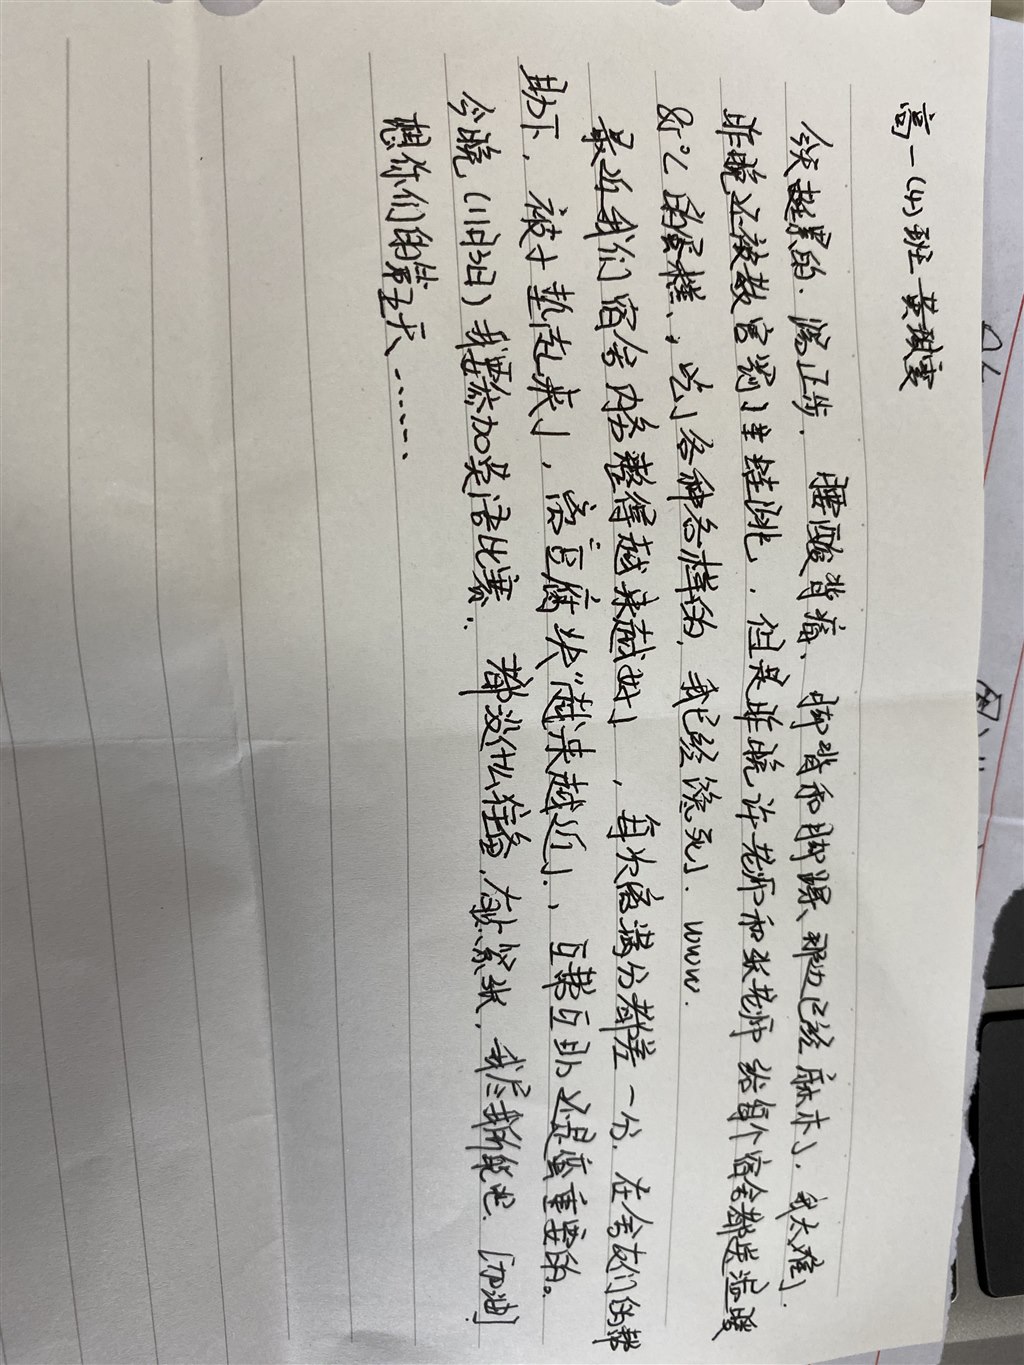 高一(4)班 黄甜雯
今天挺累的.踢正步.腰酸背痛、脚背和脚踝、那边已经麻木了.我太难了.
昨晚还被教官罚了半蛙跳.但是昨晚许老师和张老师给每个宿舍都送温暖
85℃的蛋糕、,吃了各种各样的,我已经馋死了.www.
最近我们宿舍内务整得越来越好了,每次离满分都差一分.在舍友们的帮
助下,被子垫起来了,离"豆腐块"越来越近了.,互帮互助还是蛮重要的。
今晚(11月3日)我要参加英语比赛.,都没什么经验,有点紧张,我尽我所能吧.[加油]
想你们的第五天……